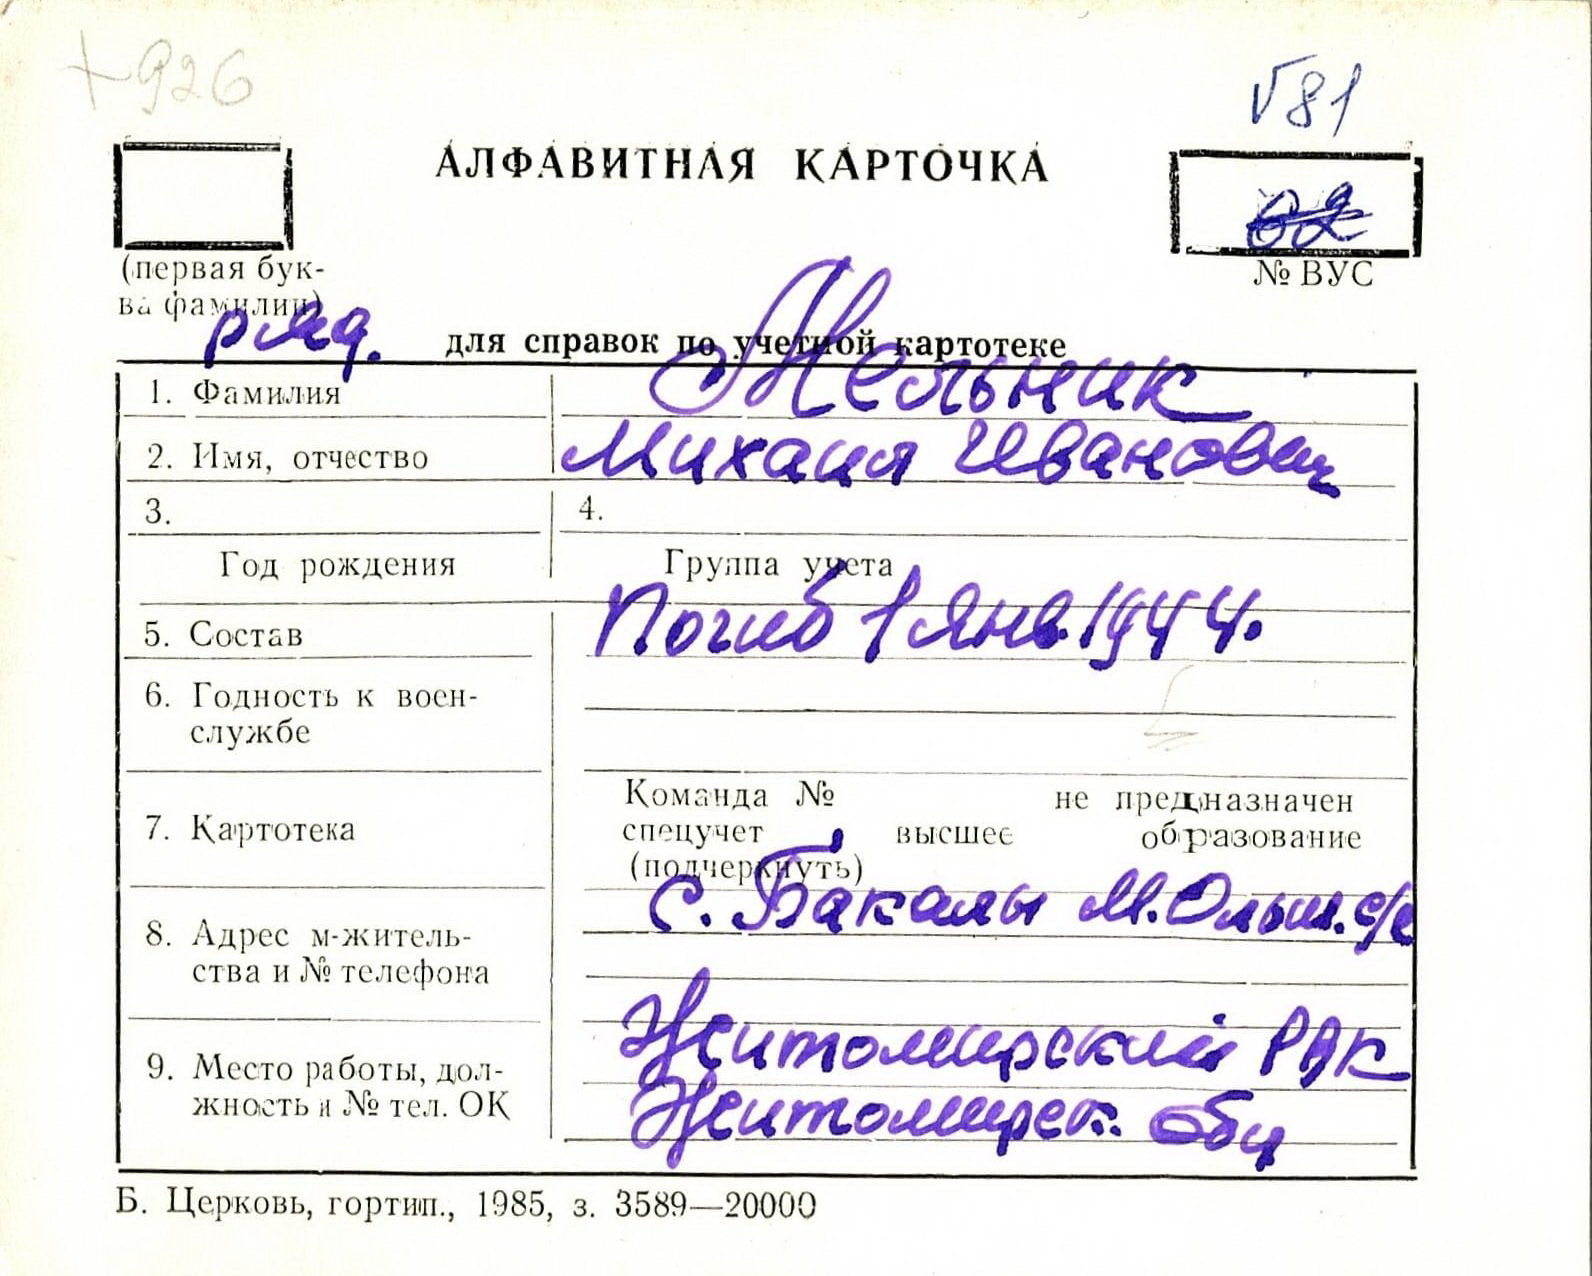 +926
√81
АЛФАВИТНАЯ КАРТОЧКА
62
(первая бук-
ва фамилии)
№ ВУС
ряд.
для справок по учетной картотеке
1. Фамилия Мельник
2. Имя, отчество Михаил Иванович
3. 4.
Год рождения Группа учета
5. Состав Погиб 1 янв. 1944.
6. Годность к воен-
службе
Команда № не предназначен
7. Картотека спецучет высшее образование
(подчеркнуть)
с. Бакалы М.Ольш. с/с
8. Адрес м-житель-
ства и № телефона
Житомирский РВК
9. Место работы, дол-
жность и № тел. ОК Житомирск. обл
Б. Церковь, гортип., 1985, з. 3589—20000